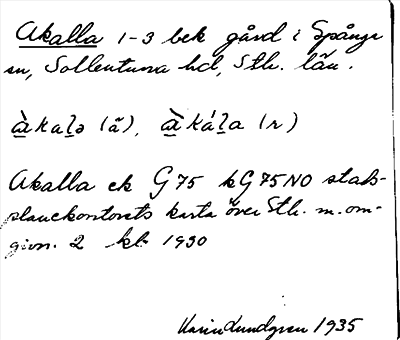 Akalla 1-3 bek gård i Spånga
sn, Sollentuna hd, Sth. län.
àkaḷa (ä), àkáḷa (r)
Akalla ek G75 kG75NO stads-
planekontorets karta över Sth. m. om-
givn. 2 kb 1930
Karin Lundgren 1935